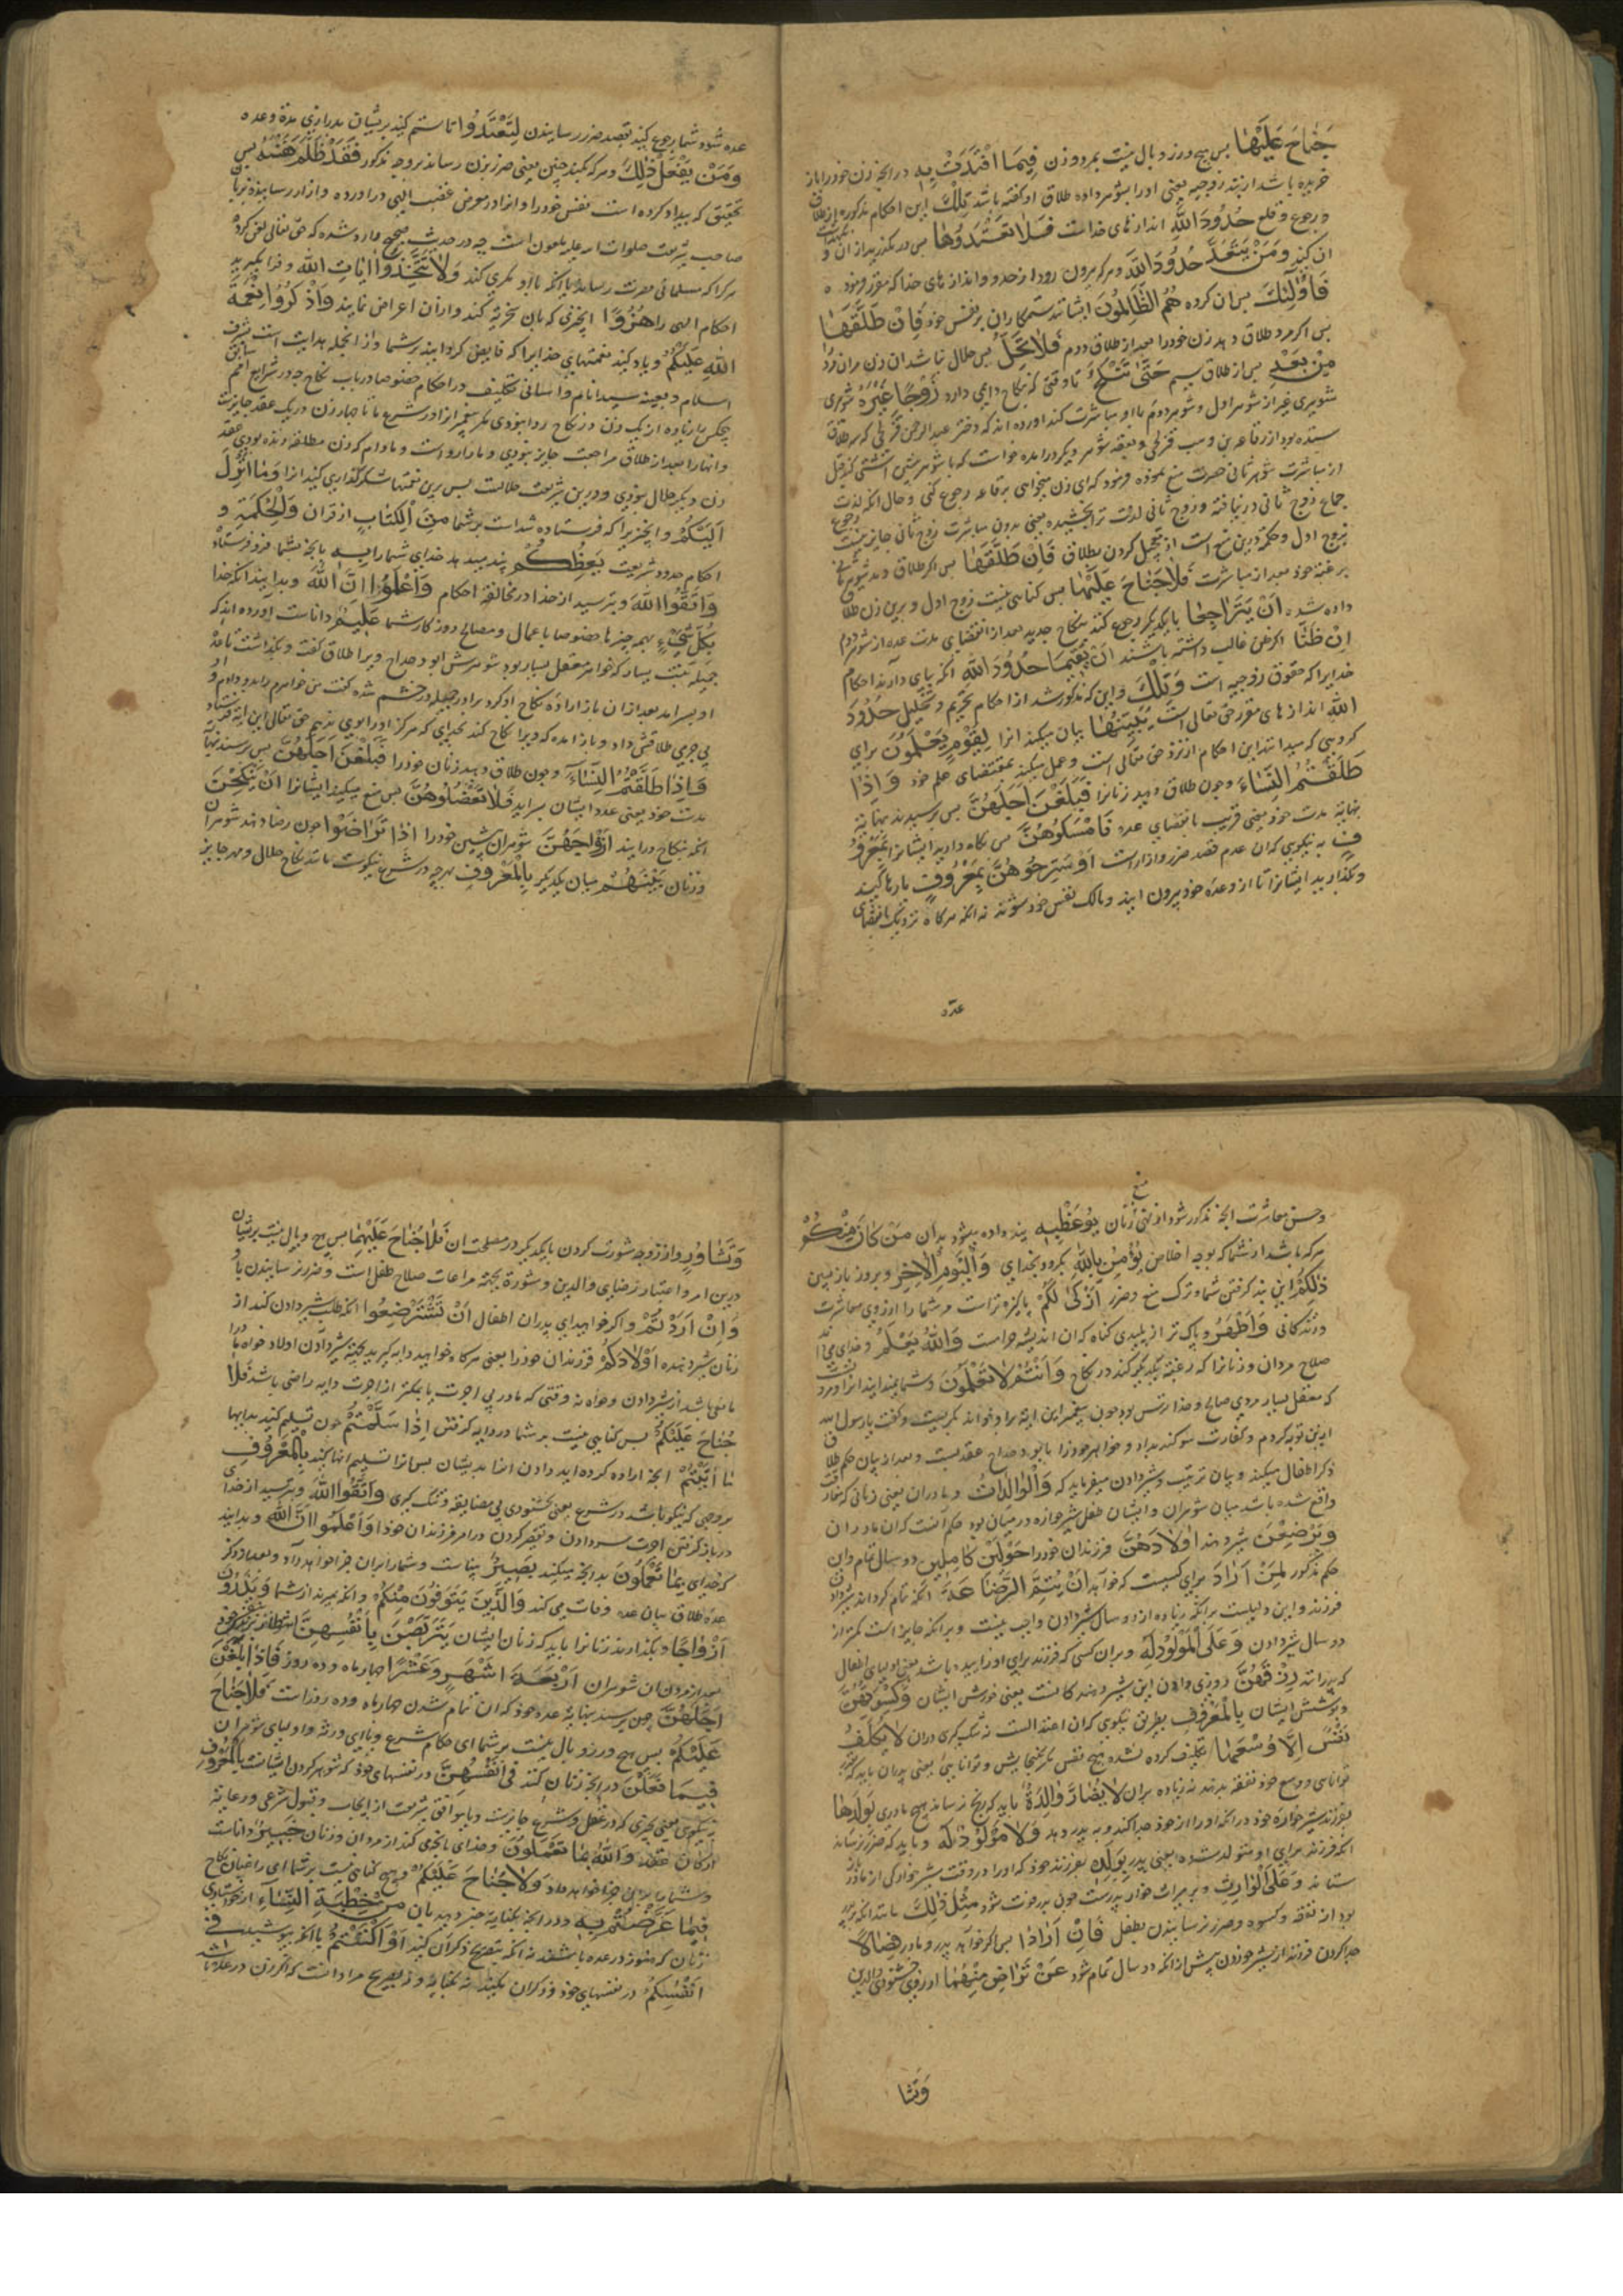 جُنَاحَ عَلَيْهِمَا پس هیچ وزر و وبال نیست بمرد و زن فِيمَا افْتَدَتْ بِهِ در انچه زن خود را باز
خریده باشد از بند زوجیه یعنی او را بشوهر داده طلاق او گفته باشد تِلْكَ این احکام مذکوره از طلاق
و رجوع و خلع حُدُودُ اللّٰهِ اندازهای خداست فَلَا تَعْتَدُوهَا پس در مگذرید از ان و
ان کند وَمَنْ يَتَعَدَّ حُدُودَ اللّٰهِ و هر که بیرون رود از حد و اندازهای خدا که مقرر فرموده
فَأُولٰئِكَ پس ان کروه هُمُ الظَّالِمُونَ ایشانند ستمکاران بر نفس خود فَإِنْ طَلَّقَهَا
پس اکر مرد طلاق دهد زن خود را بعد از طلاق دوم فَلَا تَحِلُّ پس حلال نباشد ان زن مران مرد را
مِنْ بَعْدُ پس از طلاق سیم حَتَّى تَنْكِحَ تا وقتی که نکاح دایمی دارد زَوْجًا غَيْرَهُ شوهری
شوهری غیر از شوهر اول و شوهر دوم با او مباشرت کند اورده اند که دختر عبد الرحمن قرظی که سه طلاق
ستده بود از رفاعه بن وهب قرظی و بعقد شوهر دیکر درامده خواست که با شوهر پیشین اشتی کند قبل
از مباشرت شوهر ثانی حضرت منع نموده فرمود که ای زن میخواهی برفاعه رجوع کنی و حال انکه لذت
جماع زوج ثانی در نیافته و زوج ثانی لذت ترا نچشیده یعنی بدون مباشرت زوج ثانی جایز نیست رجوع
بزوج اول و حکمة درین منع است از تعجیل کردن بطلاق فَإِنْ طَلَّقَهَا پس اکر طلاق دهد شوی ثانی
برغبة خود بعد از مباشرت فَلَا جُنَاحَ عَلَيْهِمَا پس کناهی نیست زوج اول و برین زن طلاق
داده شده أَنْ يَتَرَاجَعَا بایکدیکر رجوع کنند بنکاح جدید بعد از انقضای مدت عده از شوهر دوم
إِنْ ظَنَّا اکر ظن غالب داشته باشند أَنْ يُقِيمَا حُدُودَ اللّٰهِ انکه بپای دارند احکام
خدایرا که حقوق زوجیه است وَتِلْكَ و این که مذکور شد از احکام تحریم و تحلیل حُدُودُ
اللّٰهِ اندازهای مقرر حق تعالی است يُبَيِّنُهَا بیان میکند انرا لِقَوْمٍ يَعْلَمُونَ برای
کروهی که میدانند این احکام از نزد حق تعالی است و عمل میکنند بمقتضای علم خود وَإِذَا
طَلَّقْتُمُ النِّسَاءَ و چون طلاق دهید زنانرا فَبَلَغْنَ أَجَلَهُنَّ پس برسیدند بنهایة
نهایة مدت خود یعنی قریب بانقضای عده فَأَمْسِكُوهُنَّ پس نکاه دارید ایشانرا بِمَعْرُو
فٍ به نیکویی که ان عدم قصد ضرر و ازار است أَوْ سَرِّحُوهُنَّ بِمَعْرُوفٍ یا رها کنید
و بکذارید ایشانرا تا از وعده خود بیرون ایند و مالک نفس خود شوند نه انکه هرکاه نزدیک بانقضای
عده
عده شود شما رجوع کنید بقصد ضرر رسانیدن لِتَعْتَدُوا تا ستم کنید بر ایشان بدرازی مدة و عده
وَمَنْ يَفْعَلْ ذٰلِكَ و هر که بکند چنین یعنی ضرر بزن رساند بر وجه مذکور فَقَدْ ظَلَمَ نَفْسَهُ پس
بتحقیق که بیداد کرده است نفس خود را و انرا در معرض غضب الهی دراورده و ازار رسانیده نزد
صاحب شریعت صلوات الله علیه ملعون است چه در حدیث صحیح وارد شده که حق تعالی لعن کرده
هر کرا که مسلمانی مضرت رساند یا انکه با او مکری کند وَلَا تَتَّخِذُوا آيَاتِ اللّٰهِ و فرا مکیرید
احکام الهی را هُزُوًا انچیزی که بان سخریه کنند و ازان اعراض نمایند وَاذْكُرُوا نِعْمَةَ
اللّٰهِ عَلَيْكُمْ و یاد کنید نعمتهای خدایرا که فایض کردانید بر شما و از انجمله هدایت است بشرف
اسلام و بعثة سید انام و اسانی تکلیف در احکام خصوصا در باب نکاح چه در شرایع امم سابق
هیچکس را زیاده از یک زن در نکاح روا نبودی مکر پیغمبرانرا و در شرع ما تا چهار زن در یک عقد جایزست
و انها را بعد از طلاق مراجعت جایز نبودی و ما را رواست و مادام که زن مطلقه زنده بودی عقد
زن دیکر حلال نبودی و درین شریعت حلالست پس برین نعمتها شکرکذاری کنید انرا وَمَا أَنْزَلَ
عَلَيْكُمْ و انچیز را که فرستاده شد است بر شما مِنَ الْكِتَابِ از قران وَالْحِكْمَةِ و
احکام حدود شریعت يَعِظُكُمْ پند میدهد خدای شما را بِهِ بانچه بشما فرو فرستاد
وَاتَّقُوا اللّٰهَ و بترسید از خدا در مخالفة احکام وَاعْلَمُوا أَنَّ اللّٰهَ و بدانید انکه خدا
بِكُلِّ شَيْءٍ بهمه چیزها خصوصا باعمال و مصالح روزکار شما عَلِيمٌ داناست اورده اند که
جمیله بنت یسار که خواهر معقل بن یسار بود شوهرش ابو دحداح ویرا طلاق کفت و بکذاشت تا عدة
او بسر امد بعد ازان باز اراده نکاح او کرد برادر جمیله در خشم شده کفت من خواهرم را بدو دادم و او
بی جرمی طلاقش داد و باز امده که ویرا نکاح کند بخدایی که هرکز او را بوی ندهم حق تعالی این ایة فرستاد
وَإِذَا طَلَّقْتُمُ النِّسَاءَ و چون طلاق دهید زنان خود را فَبَلَغْنَ أَجَلَهُنَّ پس برسند بنهایة
مدت خود یعنی عدد ایشان بسراید فَلَا تَعْضُلُوهُنَّ پس منع مکنید ایشانرا أَنْ يَنْكِحْنَ
انکه بنکاح درایند أَزْوَاجَهُنَّ شوهران پیشین خود را إِذَا تَرَاضَوْا چون رضا دهند شوهران
و زنان بَيْنَهُمْ میان یکدیکر بِالْمَعْرُوفِ بهرچه در شرع نیکوست مانند نکاح حلال و مهر جایز
و حسن معاشرت انچه مذکور شود از نهی منع زنان يُوعَظُ بِهِ پند داده میشود بدان مَنْ كَانَ مِنْكُمْ
هر که باشد از شما که بوجه اخلاص يُؤْمِنُ بِاللّٰهِ بکرود بخدای وَالْيَوْمِ الْآخِرِ و بروز بازپسین
ذٰلِكُمْ این پند کرفتن شما و ترک منع و ضرر أَزْكَى لَكُمْ پاکیزه تراست مر شما را از روی معاشرت
و زندکانی وَأَطْهَرُ و پاک تر از پلیدی کناه که ان اندیشه حرامست وَاللّٰهُ يَعْلَمُ و خدای میداند
صلاح مردان و زنانرا که رغبة بیکدیکر کنند در نکاح وَأَنْتُمْ لَا تَعْلَمُونَ و شما نمیدانید انرا اورده
که معقل بن یسار مردی صالح و خدا ترس بود چون پیغمبر این ایة برا و خواند بکریست و کفت یا رسول الله
ازین توبه کردم و کفارت سوکند بداد و خواهر خود را بابو دحداح عقد بست و بعد از بیان حکم طلاق
ذکر اطفال میکند و بیان ترتیب و شیر دادن میفرماید که وَالْوَالِدَاتُ و مادران یعنی زنانی که مفارقت
واقع شده باشد میان شوهران و ایشان طفل شیرخواره در میان بود حکم انست که ان مادران
يُرْضِعْنَ شیر دهند أَوْلَادَهُنَّ فرزندان خود را حَوْلَيْنِ كَامِلَيْنِ دو سال تمام و این
حکم مذکور لِمَنْ أَرَادَ برای کسیست که خواهد أَنْ يُتِمَّ الرَّضَاعَةَ انکه تمام کرداند شیر دادن
فرزند و این دلیلست برانکه زیاده از دو سال شیر دادن واجب نیست و برانکه جایز است کمتر از
دو سال شیر دادن وَعَلَى الْمَوْلُودِ لَهُ و بران کسی که فرزند برای او زاییده باشد یعنی اولیای اطفال
که پدرانند رِزْقُهُنَّ روزی دادن این شیر دهندکانست یعنی خورش ایشان وَكِسْوَتُهُنَّ
و پوشش ایشان بِالْمَعْرُوفِ بطریق نیکویی که ان اعتدالست نه تنک کیری دران لَا تُكَلَّفُ
نَفْسٌ إِلَّا وُسْعَهَا تکلیف کرده نشده هیچ نفس مکر بکنجایش و توانایی یعنی پدران باید که بقدر
توانایی و وسع خود نفقه بدهند نه زیاده بران لَا تُضَارَّ وَالِدَةٌ باید که رنج نرساند هیچ مادری بِوَلَدِهَا
بفرزند شیرخواره خود در انکه او را از خود جدا کند و به پدر دهد وَلَا مَوْلُودٌ لَهُ و باید که ضرر نرساند
انکه فرزند برای او متولد شده یعنی پدر بِوَلَدِهِ بفرزند خود که او را در وقت شیرخوارکی از مادر باز
ستاند وَعَلَى الْوَارِثِ و بر میراث خوار پدرست چون پدر فوت شود مِثْلُ ذٰلِكَ مانند انکه بر پدر
بود از نفقه و کسوه و ضرر نرسانیدن بطفل فَإِنْ أَرَادَا پس اکر خواهند پدر و مادر فِصَالًا
جدا کردن فرزند از شیر خوردن پیش از انکه دو سال تمام شود عَنْ تَرَاضٍ مِنْهُمَا از روی خشنودی والدین
وَتَشَا
وَتَشَاوُرٍ و از وجه مشورت کردن بایکدیکر در مصلحت ان فَلَا جُنَاحَ عَلَيْهِمَا پس هیچ وبال نیست بر ایشان
درین امر و اعتبار رضای والدین و مشورة بجهة مراعات صلاح طفل است و ضرر نرسانیدن باو
وَإِنْ أَرَدْتُمْ و اکر خواهید ای پدران اطفال أَنْ تَسْتَرْضِعُوا انکه طلب شیر دادن کنید از
زنان شیر دهنده أَوْلَادَكُمْ فرزندان خود را یعنی هرکاه خواهید دایه کیرید بجهة شیر دادن اولاد خواه مادر
مانعی باشد از شیر دادن و خواه نه وقتی که مادر بی اجرت یا بکمتر از اجرت دایه راضی باشد فَلَا
جُنَاحَ عَلَيْكُمْ پس کناهی نیست بر شما در دایه کرفتن إِذَا سَلَّمْتُمْ چون تسلیم کنید بدایها
مَا آتَيْتُمْ انچه اراده کرده اید دادن انرا بدیشان پس انرا تسلیم انها کنید بِالْمَعْرُوفِ
بر وجهی که نیکو باشد در شرع یعنی بخشنودی بی مضایقه و تنک کیری وَاتَّقُوا اللّٰهَ و بترسید از خدا
در باز کرفتن اجرت و تقصیر کردن در امر فرزندان خود وَاعْلَمُوا أَنَّ اللّٰهَ و بدانید
که خدای بِمَا تَعْمَلُونَ بدانچه میکنید بَصِيرٌ بیناست و شما را بران جزا خواهد داد و بعد از ذکر
عدة طلاق بیان عده وفات می کند وَالَّذِينَ يُتَوَفَّوْنَ مِنْكُمْ و انکه بمیرند از شما وَيَذَرُونَ
أَزْوَاجًا و بکذارند زنانرا باید که زنان ایشان يَتَرَبَّصْنَ بِأَنْفُسِهِنَّ انتظار برند بنفس خود
بعد از مردن ان شوهران أَرْبَعَةَ أَشْهُرٍ وَعَشْرًا چهار ماه و ده روز فَإِذَا بَلَغْنَ
أَجَلَهُنَّ چون برسند بنهایة عده خود که ان تمام شدن چهار ماه و ده روز است فَلَا جُنَاحَ
عَلَيْكُمْ پس هیچ وزر و وبال نیست بر شما ای حکام شرع و یا ای ورثه و اولیای شوهران
فِيمَا فَعَلْنَ در انچه زنان کنند فِي أَنْفُسِهِنَّ در نفسهای خود که شوهر کردن ایشانست بِالْمَعْرُوفِ
به نیکویی یعنی بچیزی که در عقل و شرع جایزست و یا موافق شریعت از ایجاب و قبول شرعی و رعایة
ارکان عقد وَاللّٰهُ بِمَا تَعْمَلُونَ و خدای بانچه کنند از مردان و زنان خَبِيرٌ داناست
و شما را بران جزا خواهد داد وَلَا جُنَاحَ عَلَيْكُمْ و هیچ کناهی نیست بر شما ای راغبان نکاح
فِيمَا عَرَّضْتُمْ بِهِ در انچه بکنایه خبر دهید بان مِنْ خِطْبَةِ النِّسَاءِ از خواستکاری
زنان که هنوز در عده باشند نه انکه بتصریح ذکر ان کنید أَوْ أَكْنَنْتُمْ یا انکه بپوشید فِي
أَنْفُسِكُمْ در نفسهای خود و ذکر ان نکنید نه بکنایة و نه بصریح مراد انست که اکر زن در عده باشد